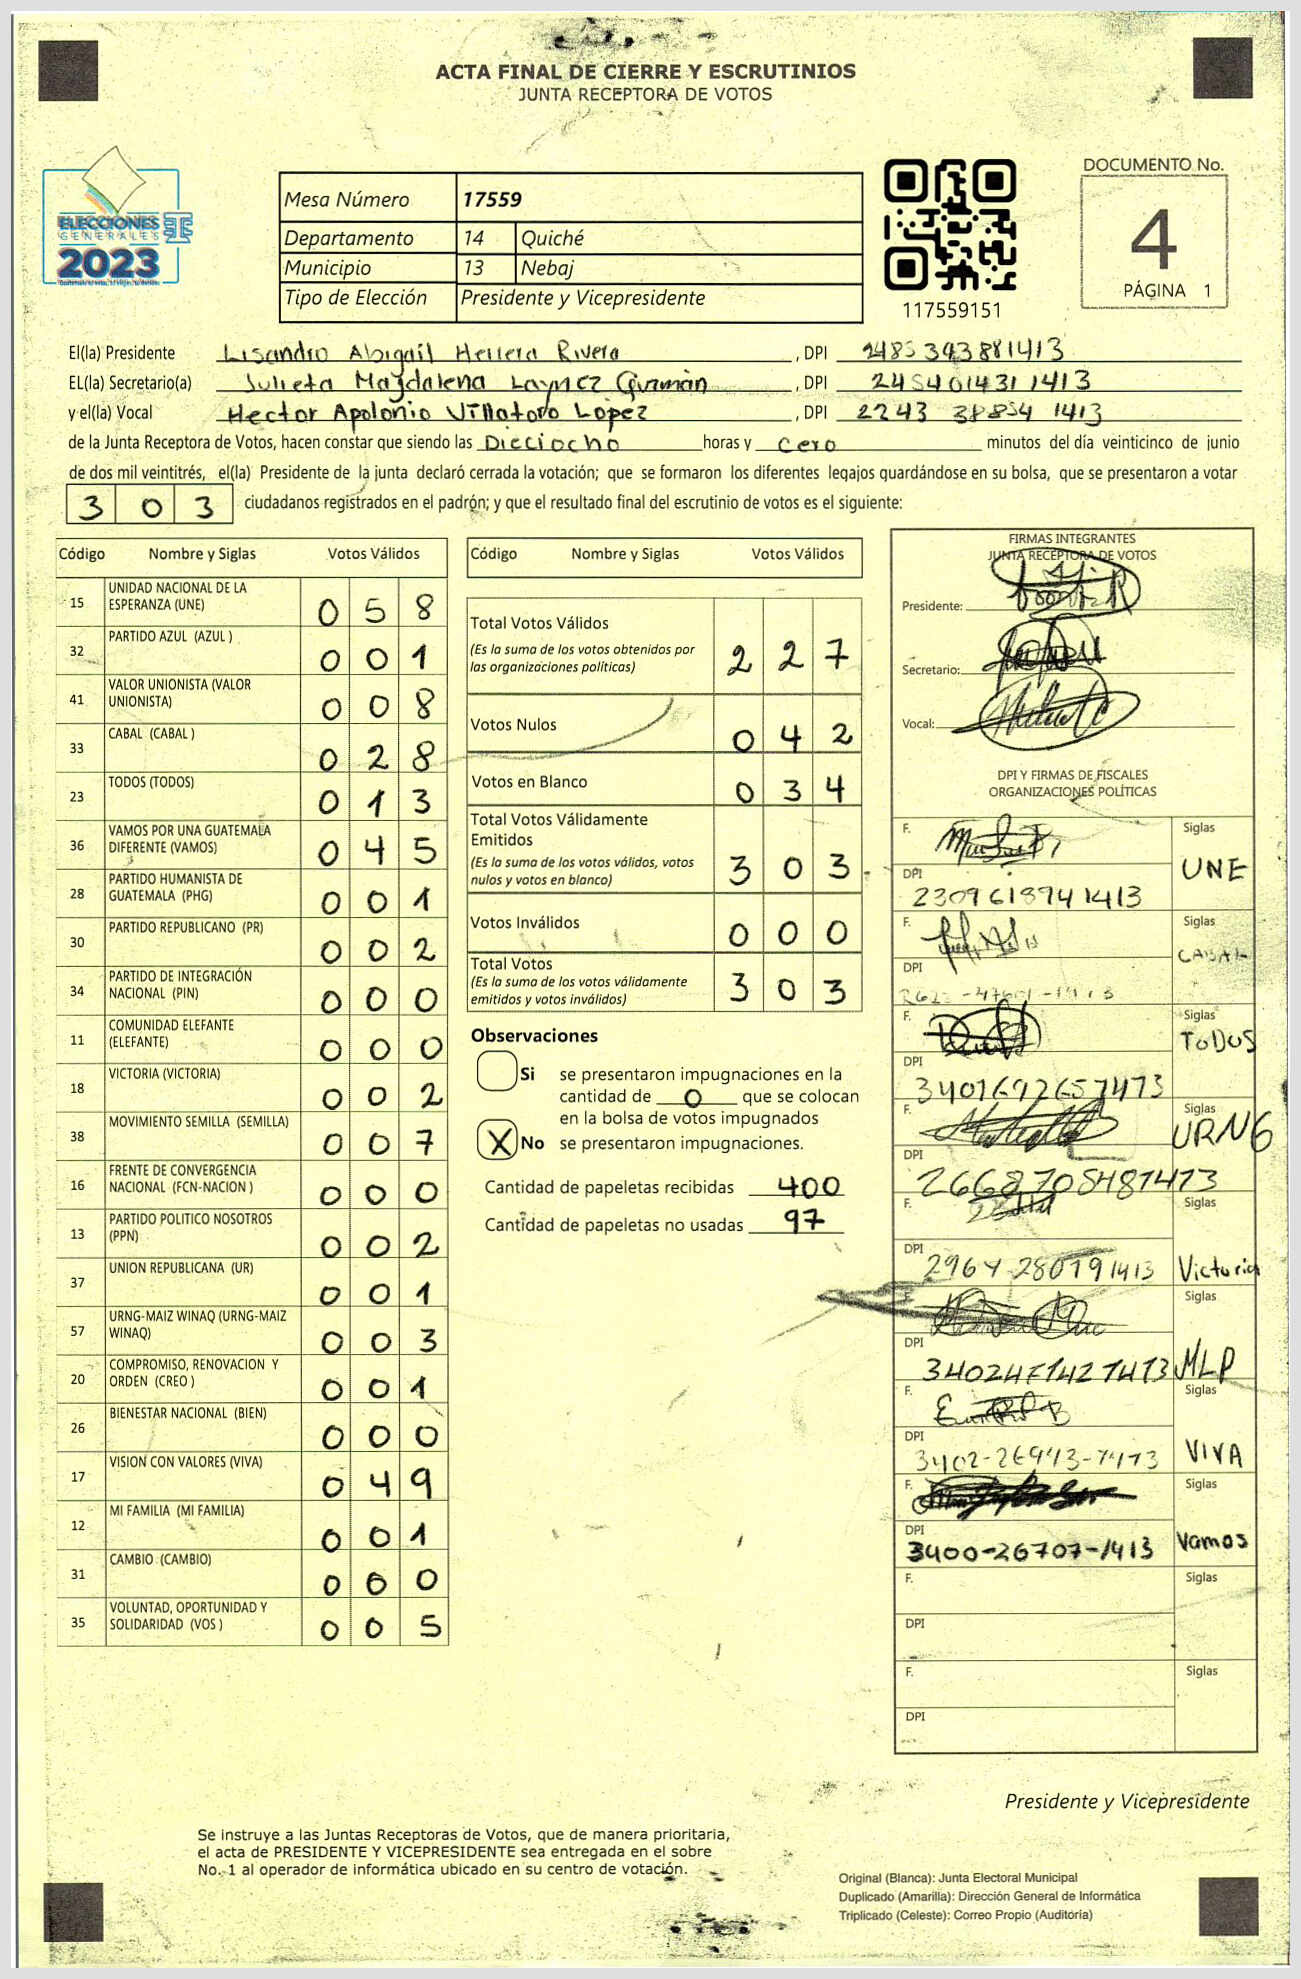 ACTA FINAL DE CIERRE Y ESCRUTINIOS
JUNTA RECEPTORA DE VOTOS
ELECCIONES
GENERALES
2023
Mesa Número 17559
Departamento 14 Quiché
Municipio 13 Nebaj
Tipo de Elección Presidente y Vicepresidente
117559151
DOCUMENTO No.
4
PÁGINA 1
El(la) Presidente Lisandro Abigail Herrera Rivera , DPI 2485393881413
EL(la) Secretario(a) Julieta Magdalena Laynez Guzmán , DPI 2454014311413
y el(la) Vocal Hector Apolonio Villatoro López , DPI 2243 38854 1413
de la Junta Receptora de Votos, hacen constar que siendo las Dieciocho horas y cero minutos del día veinticinco de junio
de dos mil veintitrés, el(la) Presidente de la junta declaró cerrada la votación; que se formaron los diferentes legajos quardándose en su bolsa, que se presentaron a votar
303 ciudadanos registrados en el padrón; y que el resultado final del escrutinio de votos es el siguiente:
Código Nombre y Siglas Votos Válidos
15 UNIDAD NACIONAL DE LA
ESPERANZA (UNE) 058
32 PARTIDO AZUL (AZUL ) 001
41 VALOR UNIONISTA (VALOR
UNIONISTA) 008
33 CABAL (CABAL ) 028
23 TODOS (TODOS) 013
36 VAMOS POR UNA GUATEMALA
DIFERENTE (VAMOS) 045
28 PARTIDO HUMANISTA DE
GUATEMALA (PHG) 001
30 PARTIDO REPUBLICANO (PR) 002
34 PARTIDO DE INTEGRACIÓN
NACIONAL (PIN) 000
11 COMUNIDAD ELEFANTE
(ELEFANTE) 000
18 VICTORIA (VICTORIA) 002
38 MOVIMIENTO SEMILLA (SEMILLA) 007
16 FRENTE DE CONVERGENCIA
NACIONAL (FCN-NACION ) 000
13 PARTIDO POLITICO NOSOTROS
(PPN) 002
37 UNION REPUBLICANA (UR) 001
57 URNG-MAIZ WINAQ (URNG-MAIZ
WINAQ) 003
20 COMPROMISO, RENOVACION Y
ORDEN (CREO ) 001
26 BIENESTAR NACIONAL (BIEN) 000
17 VISION CON VALORES (VIVA) 049
12 MI FAMILIA (MI FAMILIA) 001
31 CAMBIO (CAMBIO) 000
35 VOLUNTAD, OPORTUNIDAD Y
SOLIDARIDAD (VOS ) 005
Código Nombre y Siglas Votos Válidos
Total Votos Válidos
(Es la suma de los votos obtenidos por
las organizaciones políticas) 227
Votos Nulos 042
Votos en Blanco 034
Total Votos Válidamente
Emitidos
(Es la suma de los votos válidos, votos
nulos y votos en blanco) 303
Votos Inválidos 000
Total Votos
(Es la suma de los votos válidamente
emitidos y votos inválidos) 303
Observaciones
Si se presentaron impugnaciones en la
cantidad de 0 que se colocan
en la bolsa de votos impugnados
X No se presentaron impugnaciones.
Cantidad de papeletas recibidas 400
Cantidad de papeletas no usadas 97
FIRMAS INTEGRANTES
JUNTA RECEPTORA DE VOTOS
Presidente:
Secretario:
Vocal:
DPI Y FIRMAS DE FISCALES
ORGANIZACIONES POLÍTICAS
F. Siglas
UNE
DPI
2309618941413
F. Siglas
CABAL
DPI
F. Siglas
TODOS
DPI
3401692657473
F. Siglas
URNG
DPI
2668705481473
F. Siglas
DPI
2964 280791413 Victoria
F. Siglas
DPI
MLP
F. Siglas
DPI
3402-26943-7473 VIVA
F. Siglas
DPI
3400-26707-1413 Vamos
F. Siglas
DPI
F. Siglas
DPI
Presidente y Vicepresidente
Se instruye a las Juntas Receptoras de Votos, que de manera prioritaria,
el acta de PRESIDENTE Y VICEPRESIDENTE sea entregada en el sobre
No. 1 al operador de informática ubicado en su centro de votación.
Original (Blanca): Junta Electoral Municipal
Duplicado (Amarilla): Dirección General de Informática
Triplicado (Celeste): Correo Propio (Auditoría)